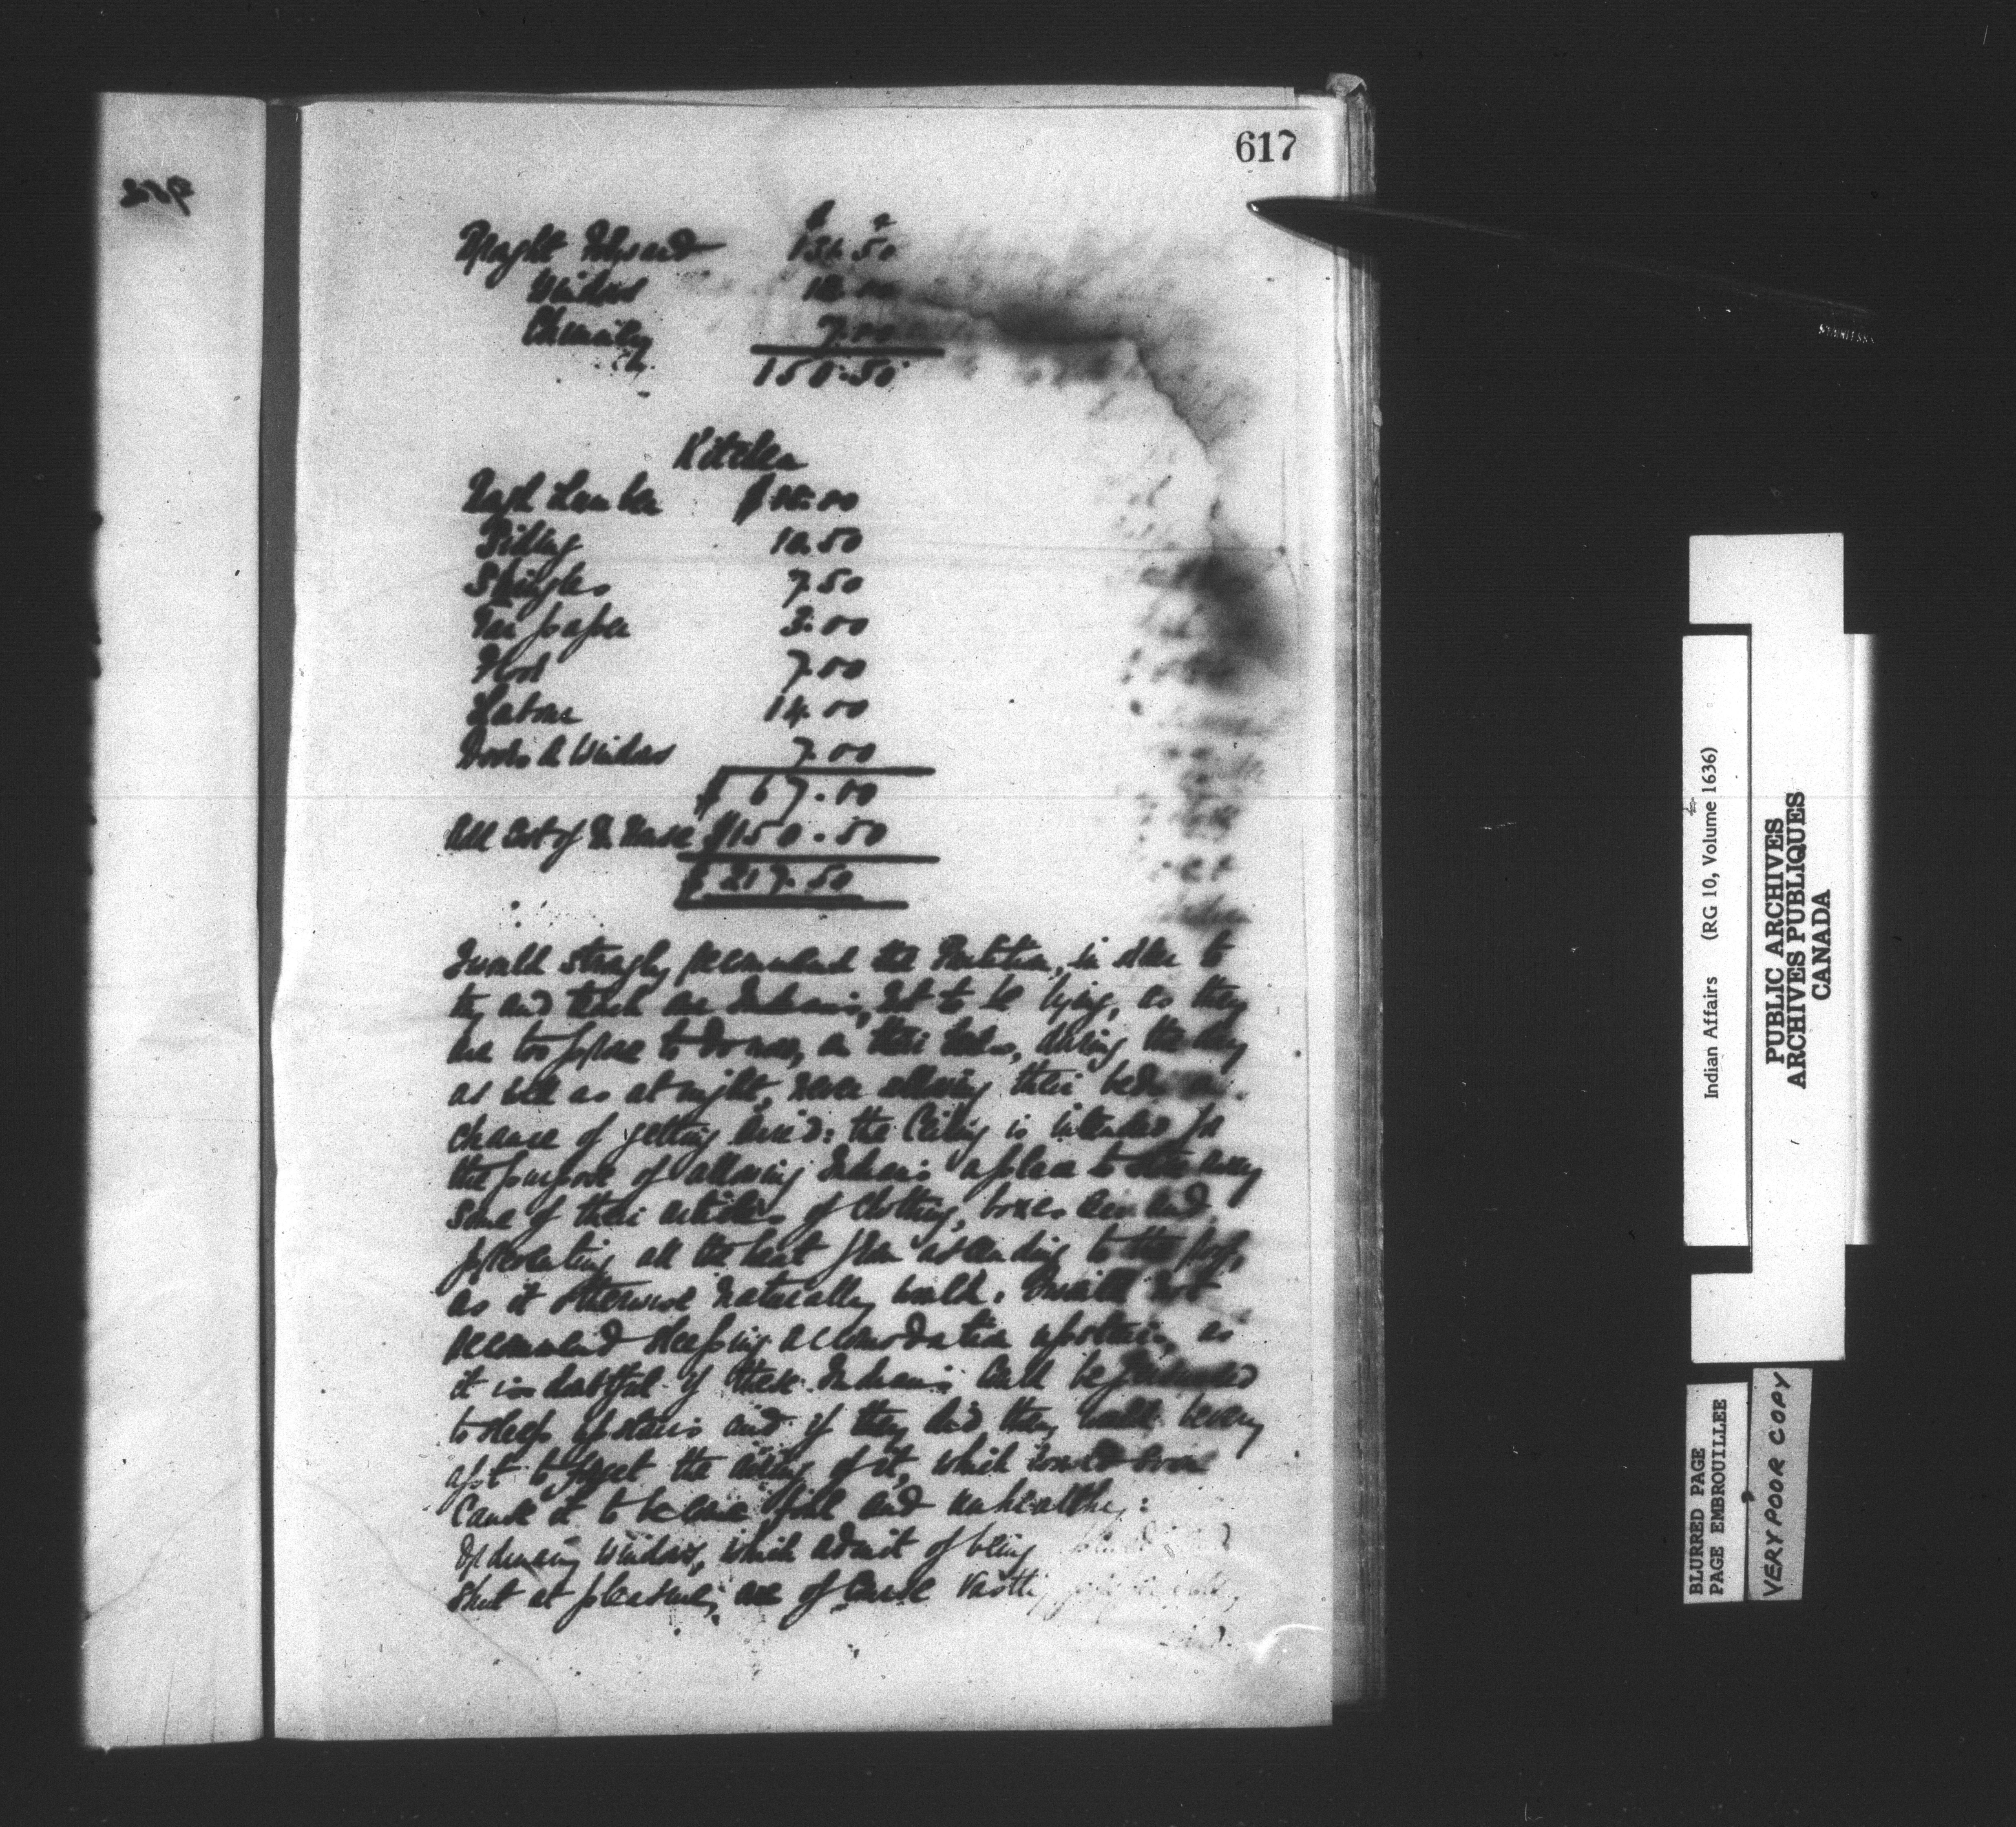 617
Brought Forward 131.50
Windows 12.00
Chimney 7.00
150.50
Kitchen
Rough Lumber $18.00
Siding 10.50
Shingles 7.50
Tar paper 3.00
Floor 7.00
Labour 14.00
Doors & Windows 7.00
$ 67.00
Add Cost of House $150.50
$ 217.50
I would strongly recommend the Partition, in order to
try and teach our Indians, not to be lying, as they
are too prone to do now, on their beds, during the day
as well as at night, never allowing their beds a
chance of getting aired: the Ceiling is intended for
the purpose of allowing Indians a place to store away
some of their articles of Clothing, boxes and
preventing all the heat from ascending to the roof,
as it otherwise naturally would. I would not
recommend sleeping accomodation upstairs, as
it is doubtful if these Indians could be
to sleep upstairs and if they did they would be very
apt to forget the airing of it, which would soon
Cause it to become foul and unhealthy:
windows, which admit of being
shut at pleasure, are of course vastly
Indian Affairs (RG 10, Volume 1636)
PUBLIC ARCHIVES
ARCHIVES PUBLIQUES
CANADA
BLURRED PAGE
PAGE EMBROUILLEE
VERY POOR COPY
STAINLESS